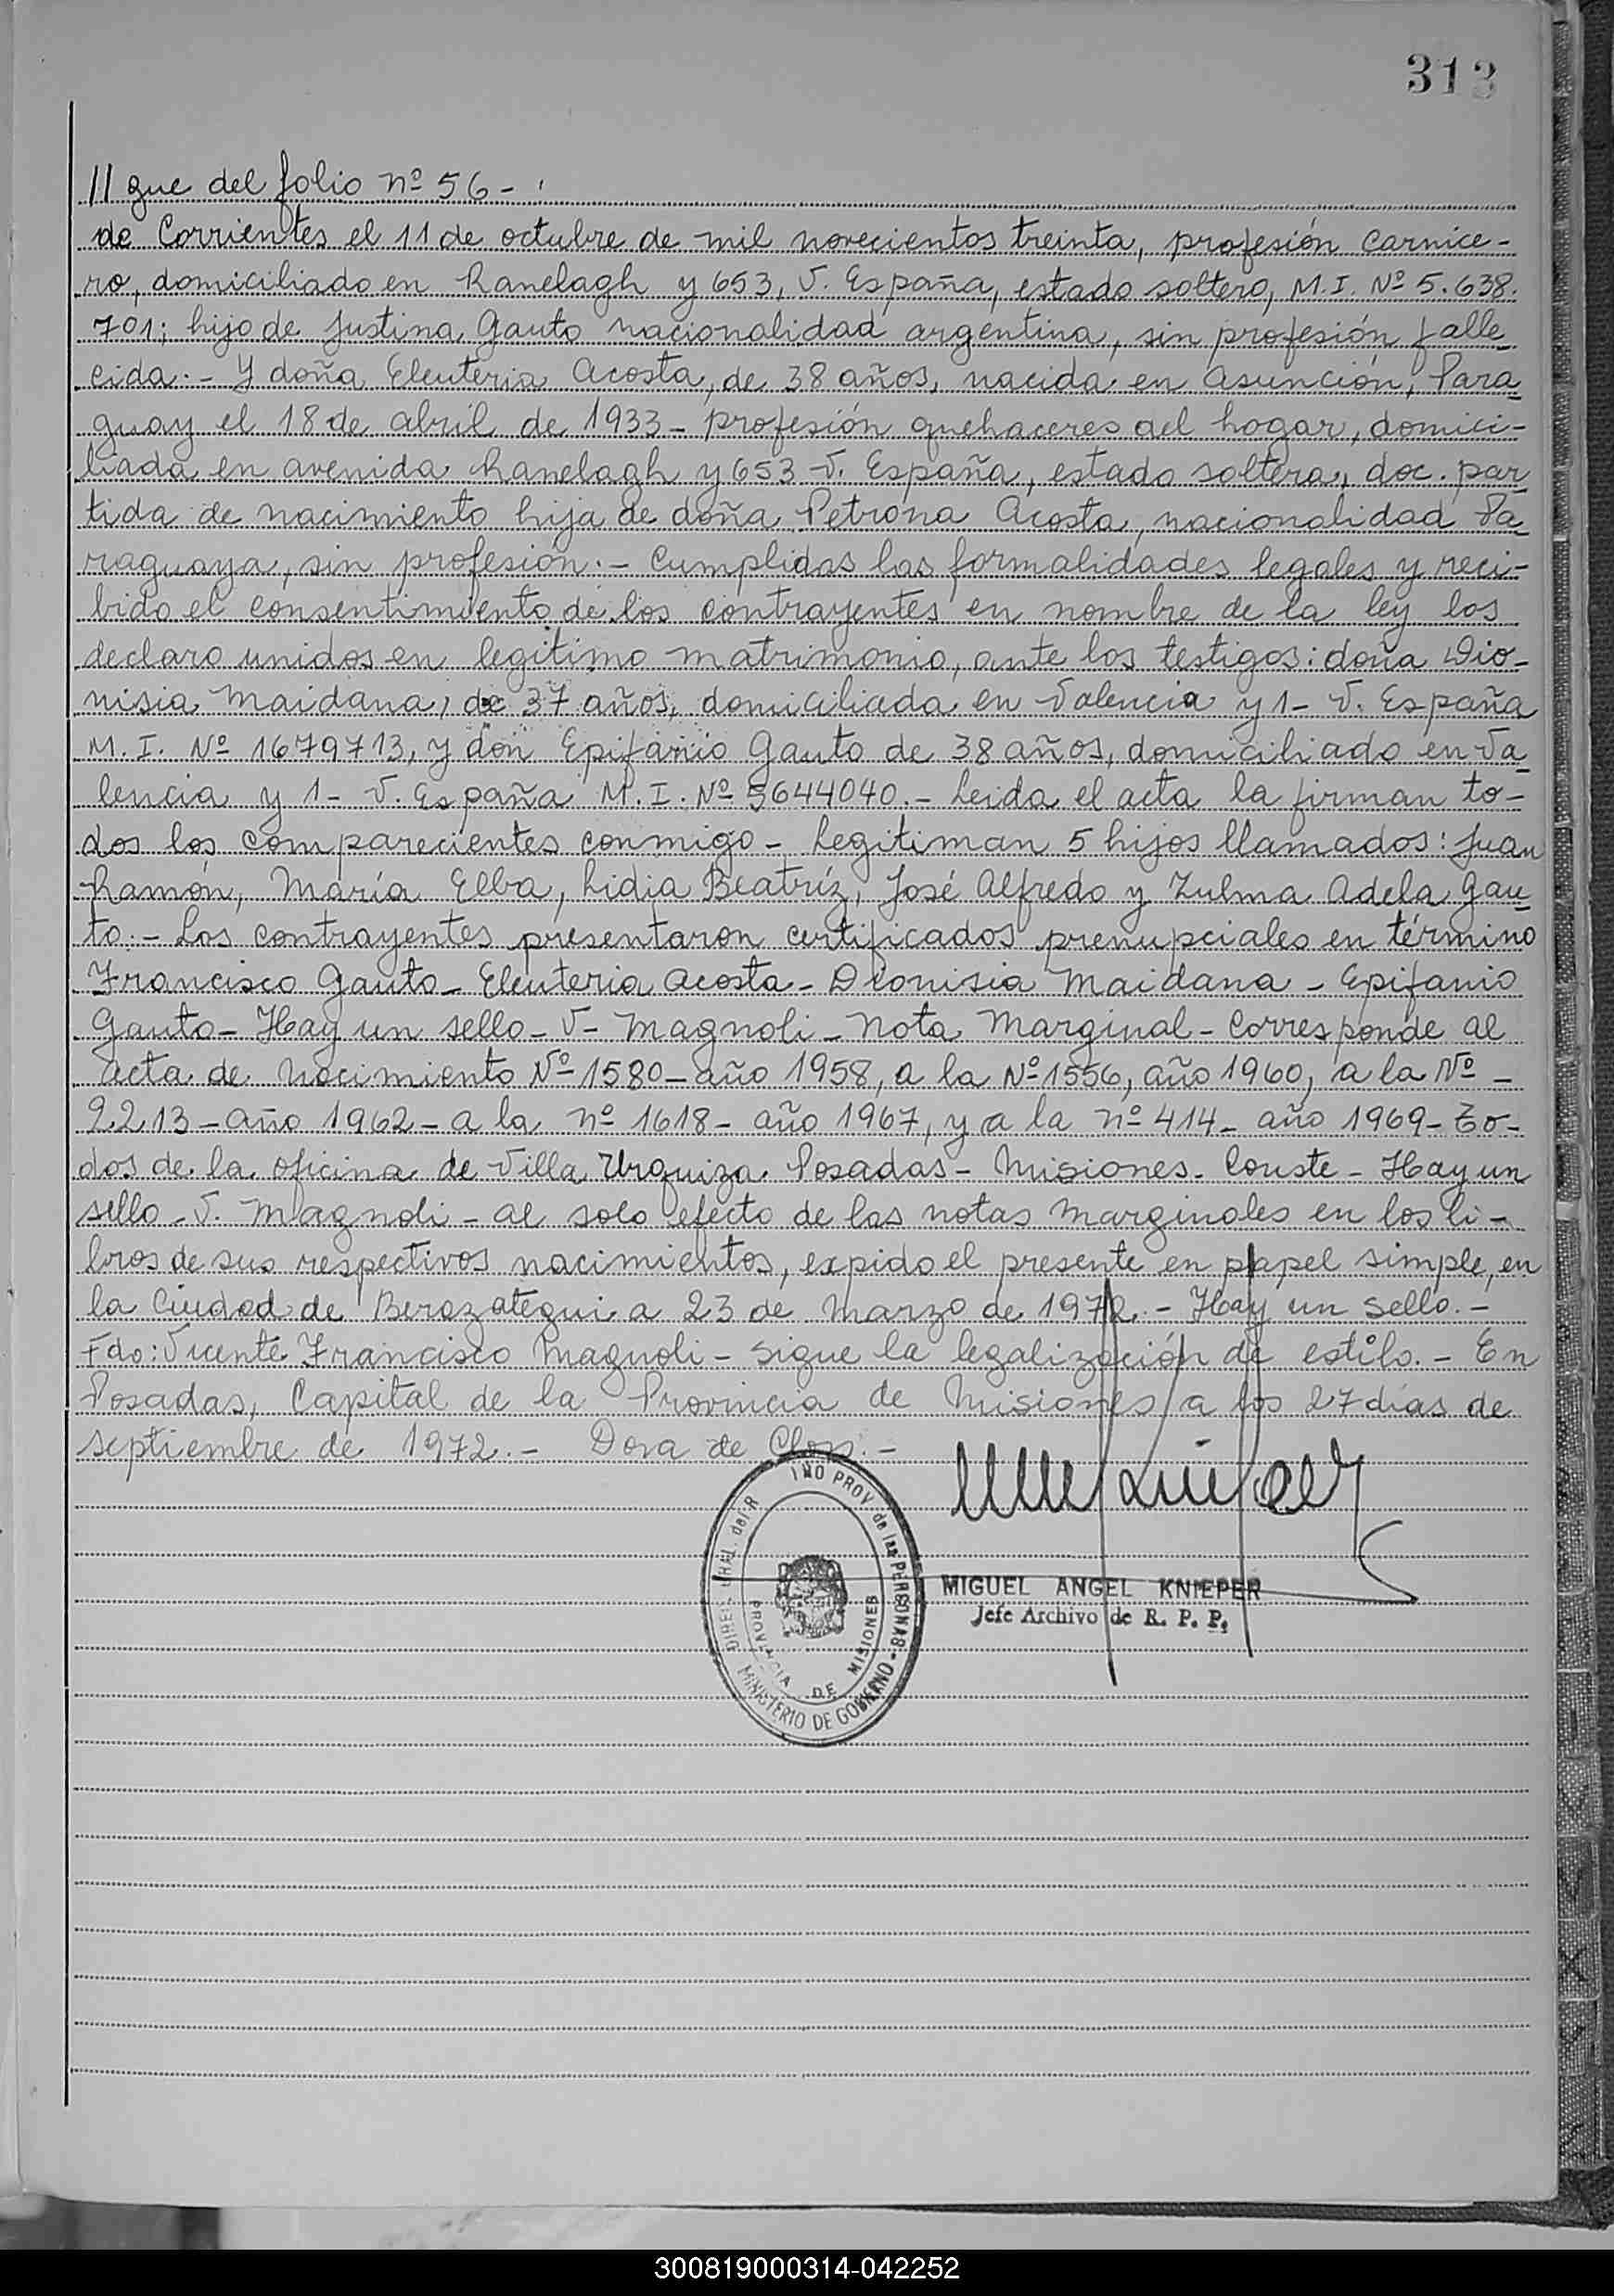 313
// gue del folio nº 56 -
de Corrientes el 11 de octubre de mil novecientos treinta, profesión carnice-
ro, domiciliado en Ranelagh y 653, V. España, estado soltero, M.I. Nº 5.638.
701; hijo de Justina Gauto nacionalidad argentina, sin profesión falle
cida. - Y doña Eleuteria Acosta, de 38 años, nacida en Asunción, Para
guay el 18 de abril de 1933 - profesión quehaceres del hogar, domici-
liada en avenida Ranelagh y 653 V. España, estado soltera, doc. par
tida de nacimiento hija de doña Petrona Acosta, nacionalidad Pa
raguaya, sin profesión. - Cumplidas las formalidades legales y reci-
bido el consentimiento de los contrayentes en nombre de la ley los
declaro unidos en legítimo matrimonio, ante los testigos: doña Dio-
nisia Maidana, de 37 años, domiciliada en Valencia y 1 - V. España
M. I. Nº 1679713, y don Epifanio Gauto de 38 años, domiciliado en Va
lencia y 1 - V. España M. I. Nº 5644040. - Leida el acta la firman to-
dos los comparecientes conmigo - Legitiman 5 hijos llamados: Juan
Ramón, María Elba, Lidia Beatríz, José Alfredo y Zulma Adela Gau
to. - Los contrayentes presentaron certificados prenupciales en término
Francisco Gauto - Eleuteria Acosta - Dionisia Maidana - Epifanio
Gauto - Hay un sello - V - Magnoli - Nota Marginal - Corresponde al
acta de Nacimiento Nº 1580 - año 1958, a la Nº 1556, año 1960, a la Nº -
2213 - año 1962 - a la nº 1618 - año 1967, y a la nº 414 - año 1969 - To-
dos de la oficina de Villa Urquiza Posadas - Misiones. Conste - Hay un
sello - V. Magnoli - al solo efecto de las notas marginales en los li-
bros de sus respectivos nacimientos, expido el presente en papel simple, en
la Ciudad de Berazategui a 23 de marzo de 1972. - Hay un sello. -
Fdo: Vicente Francisco Magnoli - Sigue la legalización de estilo. - En
Posadas, Capital de la Provincia de Misiones a los 27 días de
septiembre de 1972. - Dora de
MIGUEL ANGEL KNIEPER
Jefe Archivo de R. P. P.
PROV de las PERSONAS
MINISTERIO DE GOBIERNO
PROVINCIA DE MISIONES
300819000314-042252